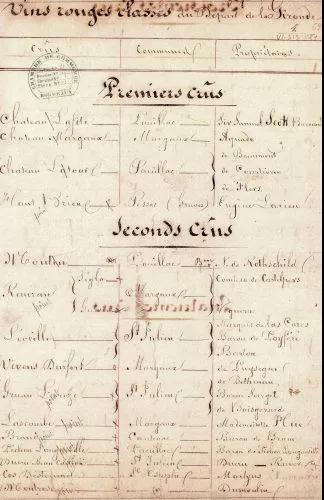 Vins rouges classés du Départ. de la Gironde
Crûs Communes Propriétaires
CHAMBRE DE COMMERCE BORDEAUX
Premiers Crûs
Chateau Lafite Pauillac Sir Samuel Scott
Chateau Margaux Margaux Aguado
de Beaumont
Chateau Latour Pauillac de Courtivron
de Flers
Haut Brion Pessac (Graves) Eugène Larrieu
Seconds Crûs
Mouton Pauillac Bon N. de Rothschild
Rauzan Ségla Margaux Comtesse de Castelpers
Viguerie
Marquis de las Cases
Léoville St Julien Baron de Poyféré
Barton
Vivens Durfort Margaux de Puységur
de Bethmann
Gruau Laroze St Julien Baron Sarget
de Boisgerard
Lascombe Margaux Mademoiselle Hue
Brane Cantenac Baron de Brane
Pichon Longueville Pauillac Baron de Pichon Longueville
Ducru Beau Caillou St Julien Ducru Ravez
Cos Destournel St Estèphe Martyns
Montrose Dumoulin